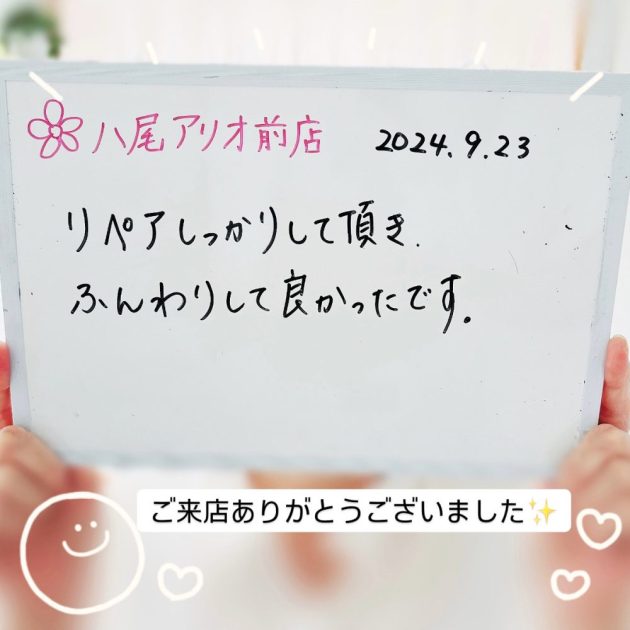 八尾アリオ前店 2024.9.23
リペアしっかりして頂き、
ふんわりして良かったです。
ご来店ありがとうございました✨